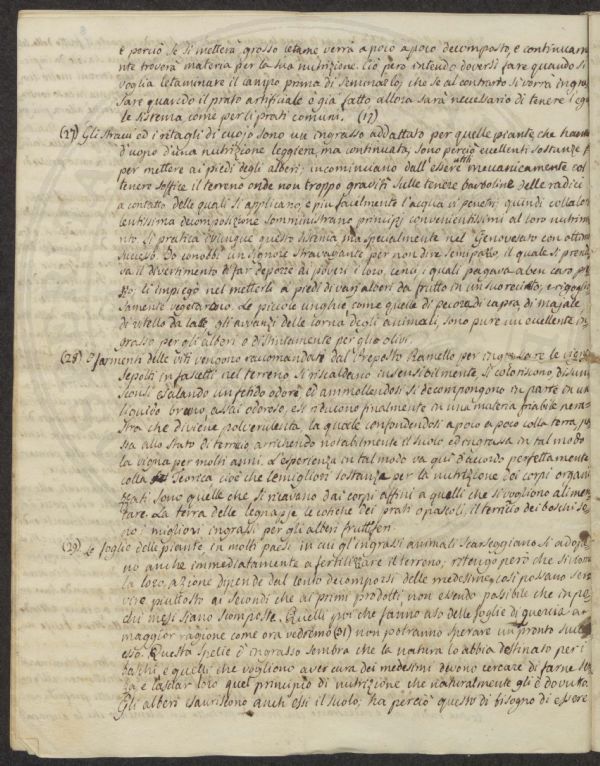 e perciò se si metterà grosso letame verrà a poco a poco decomposto, e continuam
nte troverà materia per la sua nutrizione. Ciò però intendo doversi fare quando si
voglia letaminare il campo prima di seminarlo; che se al contrario si vorrà ingras
sare quando il prato artificiale è già fatto allora sarà necessario di tenere l'egua
le sistema come per li prati comuni. (17)
(27) Gli stracci ed i ritagli di cuojo sono un ingrasso addattato per quelle piante, che hanno
d'uopo d'una nutrizione leggiera, ma continuata, sono perciò eccellenti sostanze
per mettere ai piedi degli alberi; incominciano dall'essere utili meccanicamente col
tenere soffice il terreno onde non troppo graviti sulle tenere barboline delle radici
a contatto delle quali si applicano, e più facilmente l'acqua vi penetri; quindi colla lor
lentissima decomposizione somministrano principj convenientissimi al loro nutrim
nto. Si pratica dovunque questo sistema ma specialmente nel Genovesato con ottimo
successo. Io conobbi un signore stravagante per non dire semipazzo, il quale si prende
va il divertimento di far deporre ai poveri i loro cenci, i quali pagava a ben caro prez
zo; li impiegò nel metterli a piedi di varj alberi da frutto in un suo recinto, e rigoglio
samente vegetarono. Le piccole unghie, come quelle di pecora, di capra, di majale
di vitello da latte gli avvanzi delle corna degli animali, sono pure un eccellente in
grasso per gli alberi e distintamente per gli olivi.
(28) I sarmenti delle viti vengono raccomandati dal Preposto Ramello per ingrassare le vigne
sepolti in fascetti nel terreno si riscaldano insensibilmente si coloriscono di
scuri esalando un fetido odore ed ammollendosi si decompongono in parte in un
liquido bruno, assai odoroso, e si riducono finalmente in una materia friabile neras
stra che diviene polverulenta la quale confondendosi a poco a poco colla terra, pas
sa allo stato di terriccio, arricchendo notabilmente il suolo ed ingrassa in tal modo
la vigna per molti anni. L'esperienza in tal modo va qui d'accordo perfettamente
colla Teorica cioè che le migliori sostanze per la nutrizione dei corpi organi
zzati sono quelle che si ricavano dai corpi affini a quelli che si vogliono alimen
tare. La terra delle legnaje, le cotiche dei prati o pascoli, il terriccio dei boschi so
no i migliori ingrassi per gli alberi fruttiferi.
(29) Le foglie delle piante, in molti paesi in cui gl'ingrassi animali scarseggiano si adopra
no anche immediatamente a fertilizzare il terreno; ritengo però che siccome
la loro azione dipende dal lento decomporsi delle medesime, così possano ser
vire piuttosto ai secondi che ai primi prodotti, non essendo possibile che in po
chi mesi siano scomposte. Quelli poi che fanno uso delle foglie di quercia a
maggior ragione come ora vedremo (31) non potranno sperare un pronto succ
esso. Questa specie d'ingrasso sembra che la natura lo abbia destinato per i
boschi, e quelli che vogliono aver cura dei medesimi devono cercare di farne
e lasciar loro quel principio di nutrizione che naturalmente gli è dovuto.
Gli alberi esauriscono anch'essi il suolo; ha perciò questo di bisogno di essere